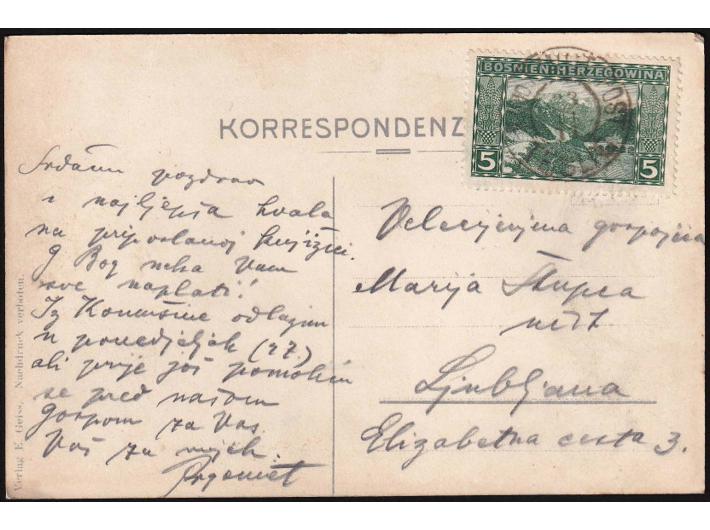 BOSNIEN-HERZEGOWINA
5 5
KORRESPONDENZ
Srdačni pozdrav
i najljepša hvala
na priposlanoj knjižici.
G Bog neka Vam
sve naplati!
Iz Konušine odlazim
u ponedjeljak (27.)
ali prije još pomolim
se pred našom
gospom za Vas.
Vaš za uvijek
Velecijenjena gospojica
Marija Štupca
Ljubljana
Elizabetna cesta 3.
Verlag E. Geiss. Nachdruck verboten.